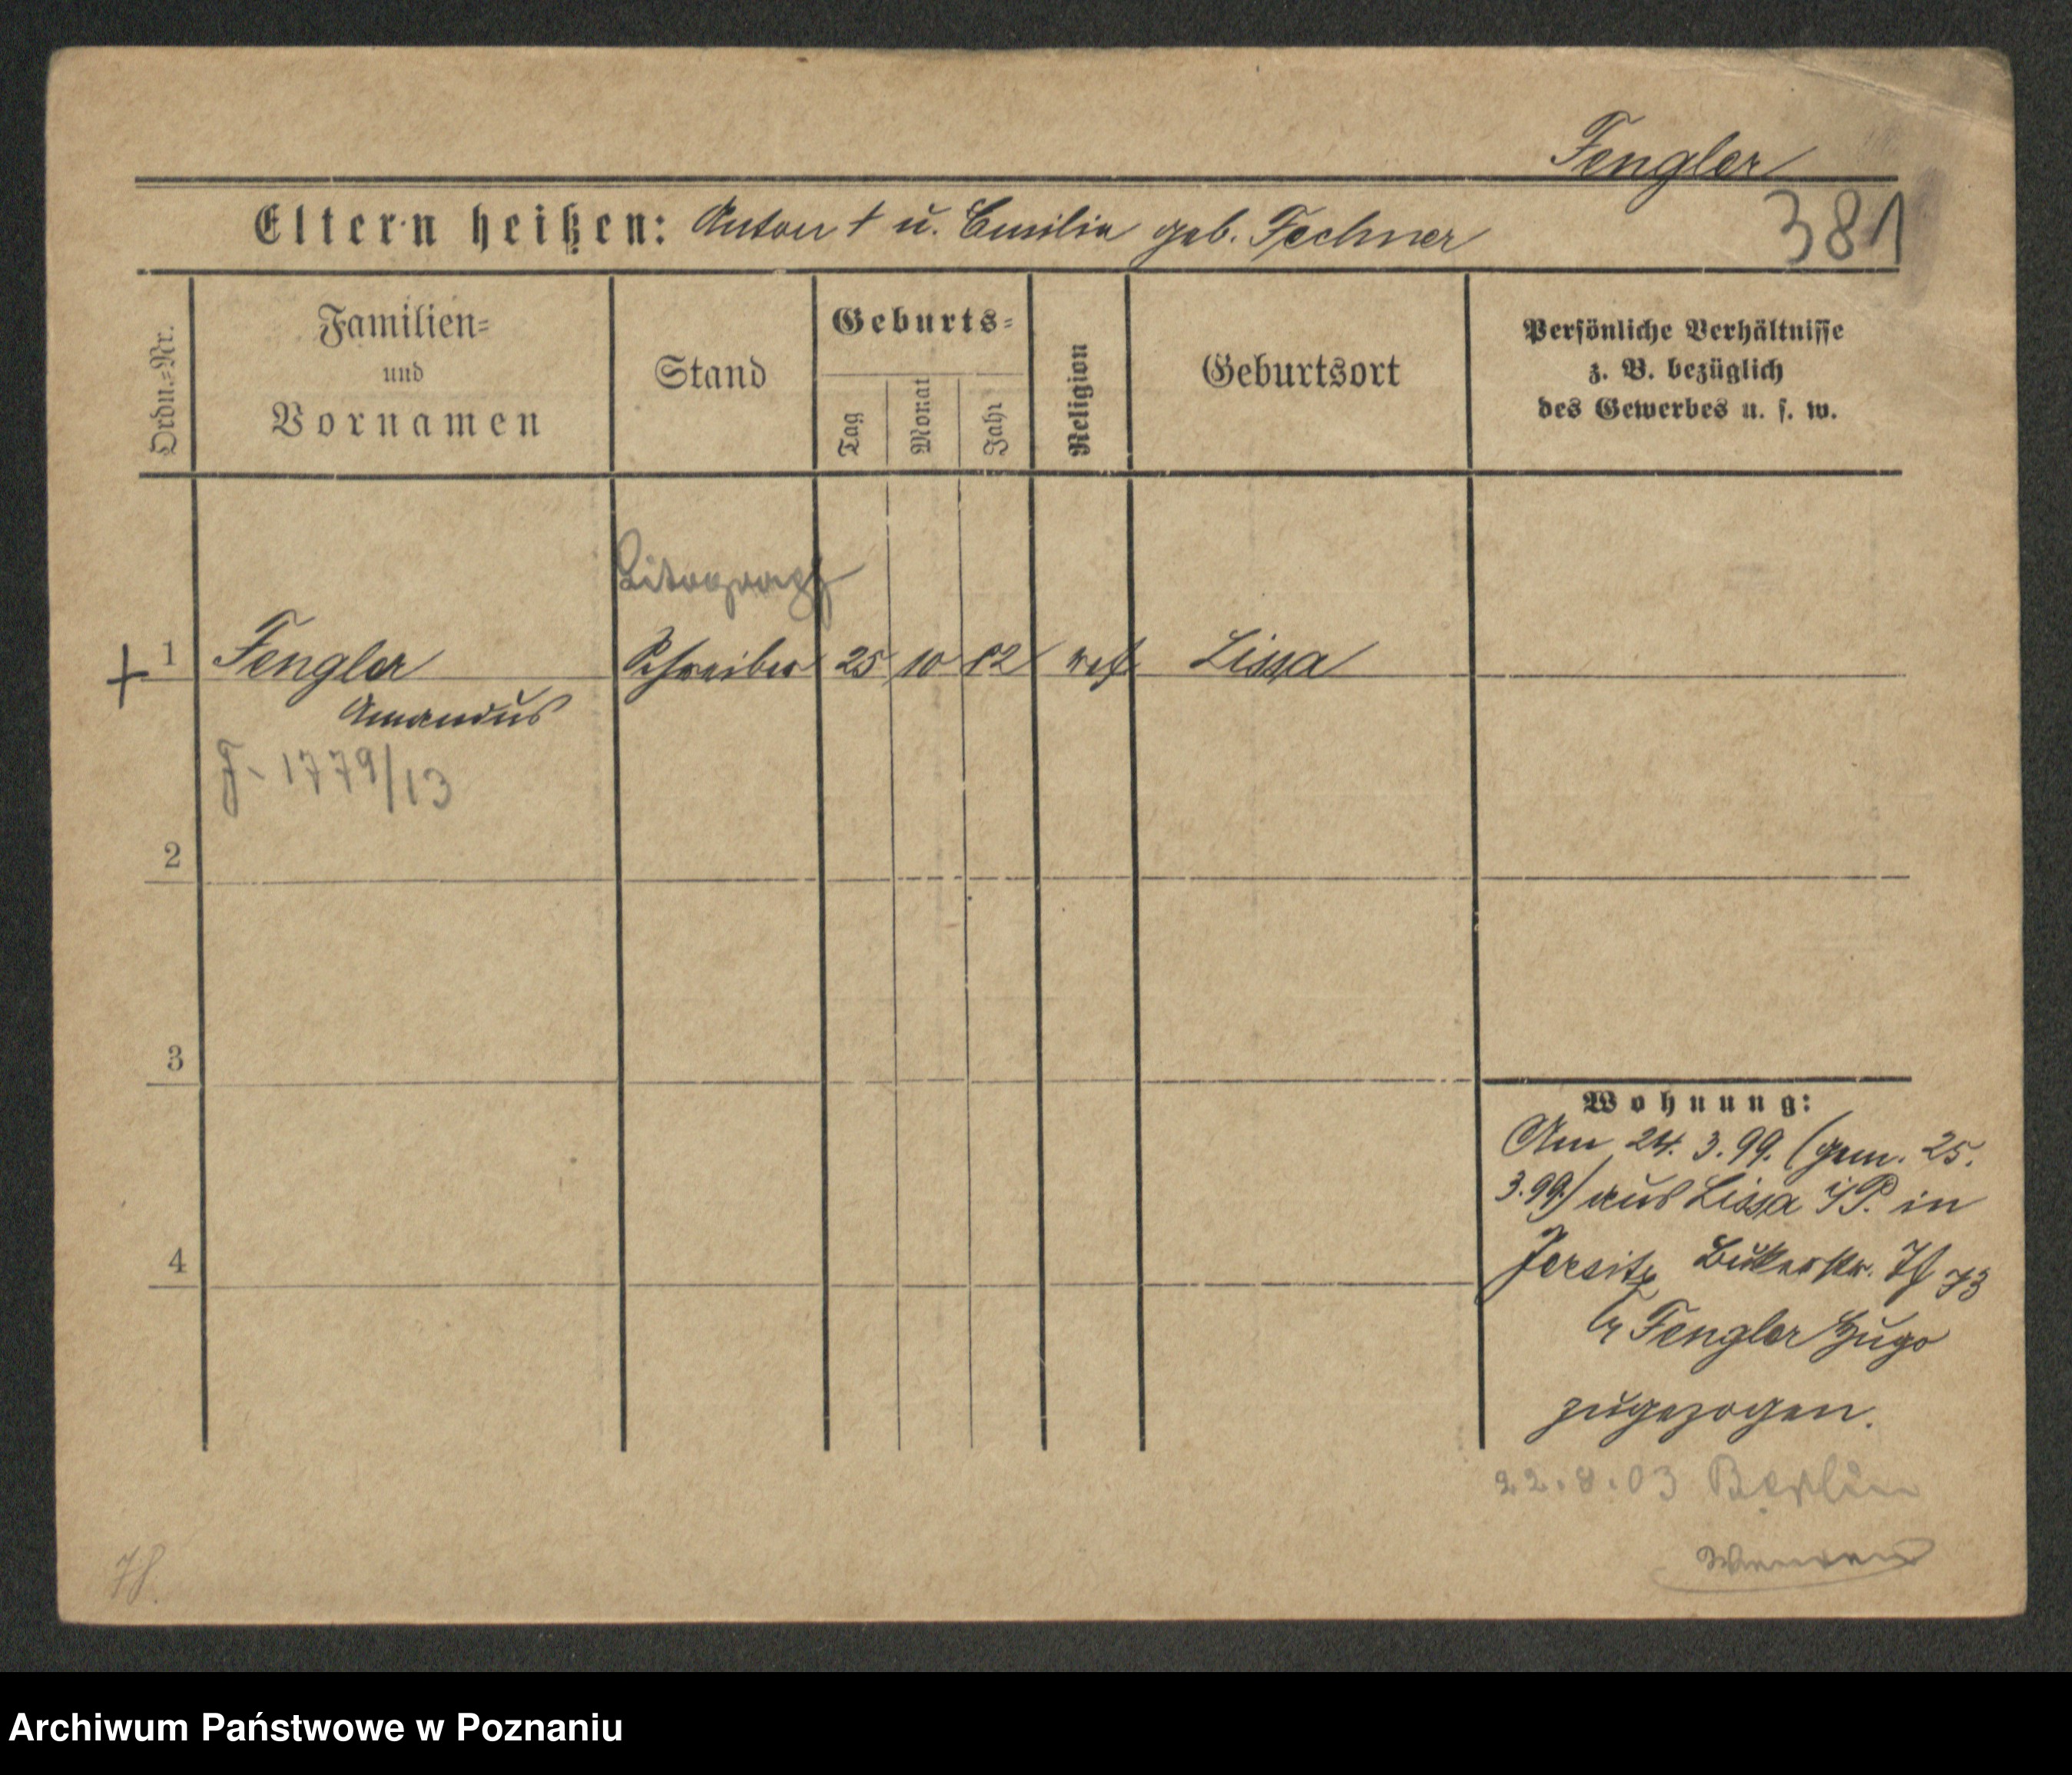 Fengler
Eltern heißen: Anton † u. Emilia geb. Fechner
381
Ordn.=Nr.
Familien=
und
Vornamen
Stand
Geburts=
Tag
Monat
Jahr
Religion
Geburtsort
Persönliche Verhältnisse
z. B. bezüglich
des Gewerbes u. s. w.
Litograph
+ 1 Fengler Schreiber 25 10 82 ref. Lissa
Amandus
F. 1779/13
2
3
4
Wohnung:
Am 24. 3. 99. (gem. 25.
3.99) aus Lissa i/P. in
Jersitz Bukerstr. 73
b/ Fengler Hugo
zugezogen.
22.8.03 Berlin